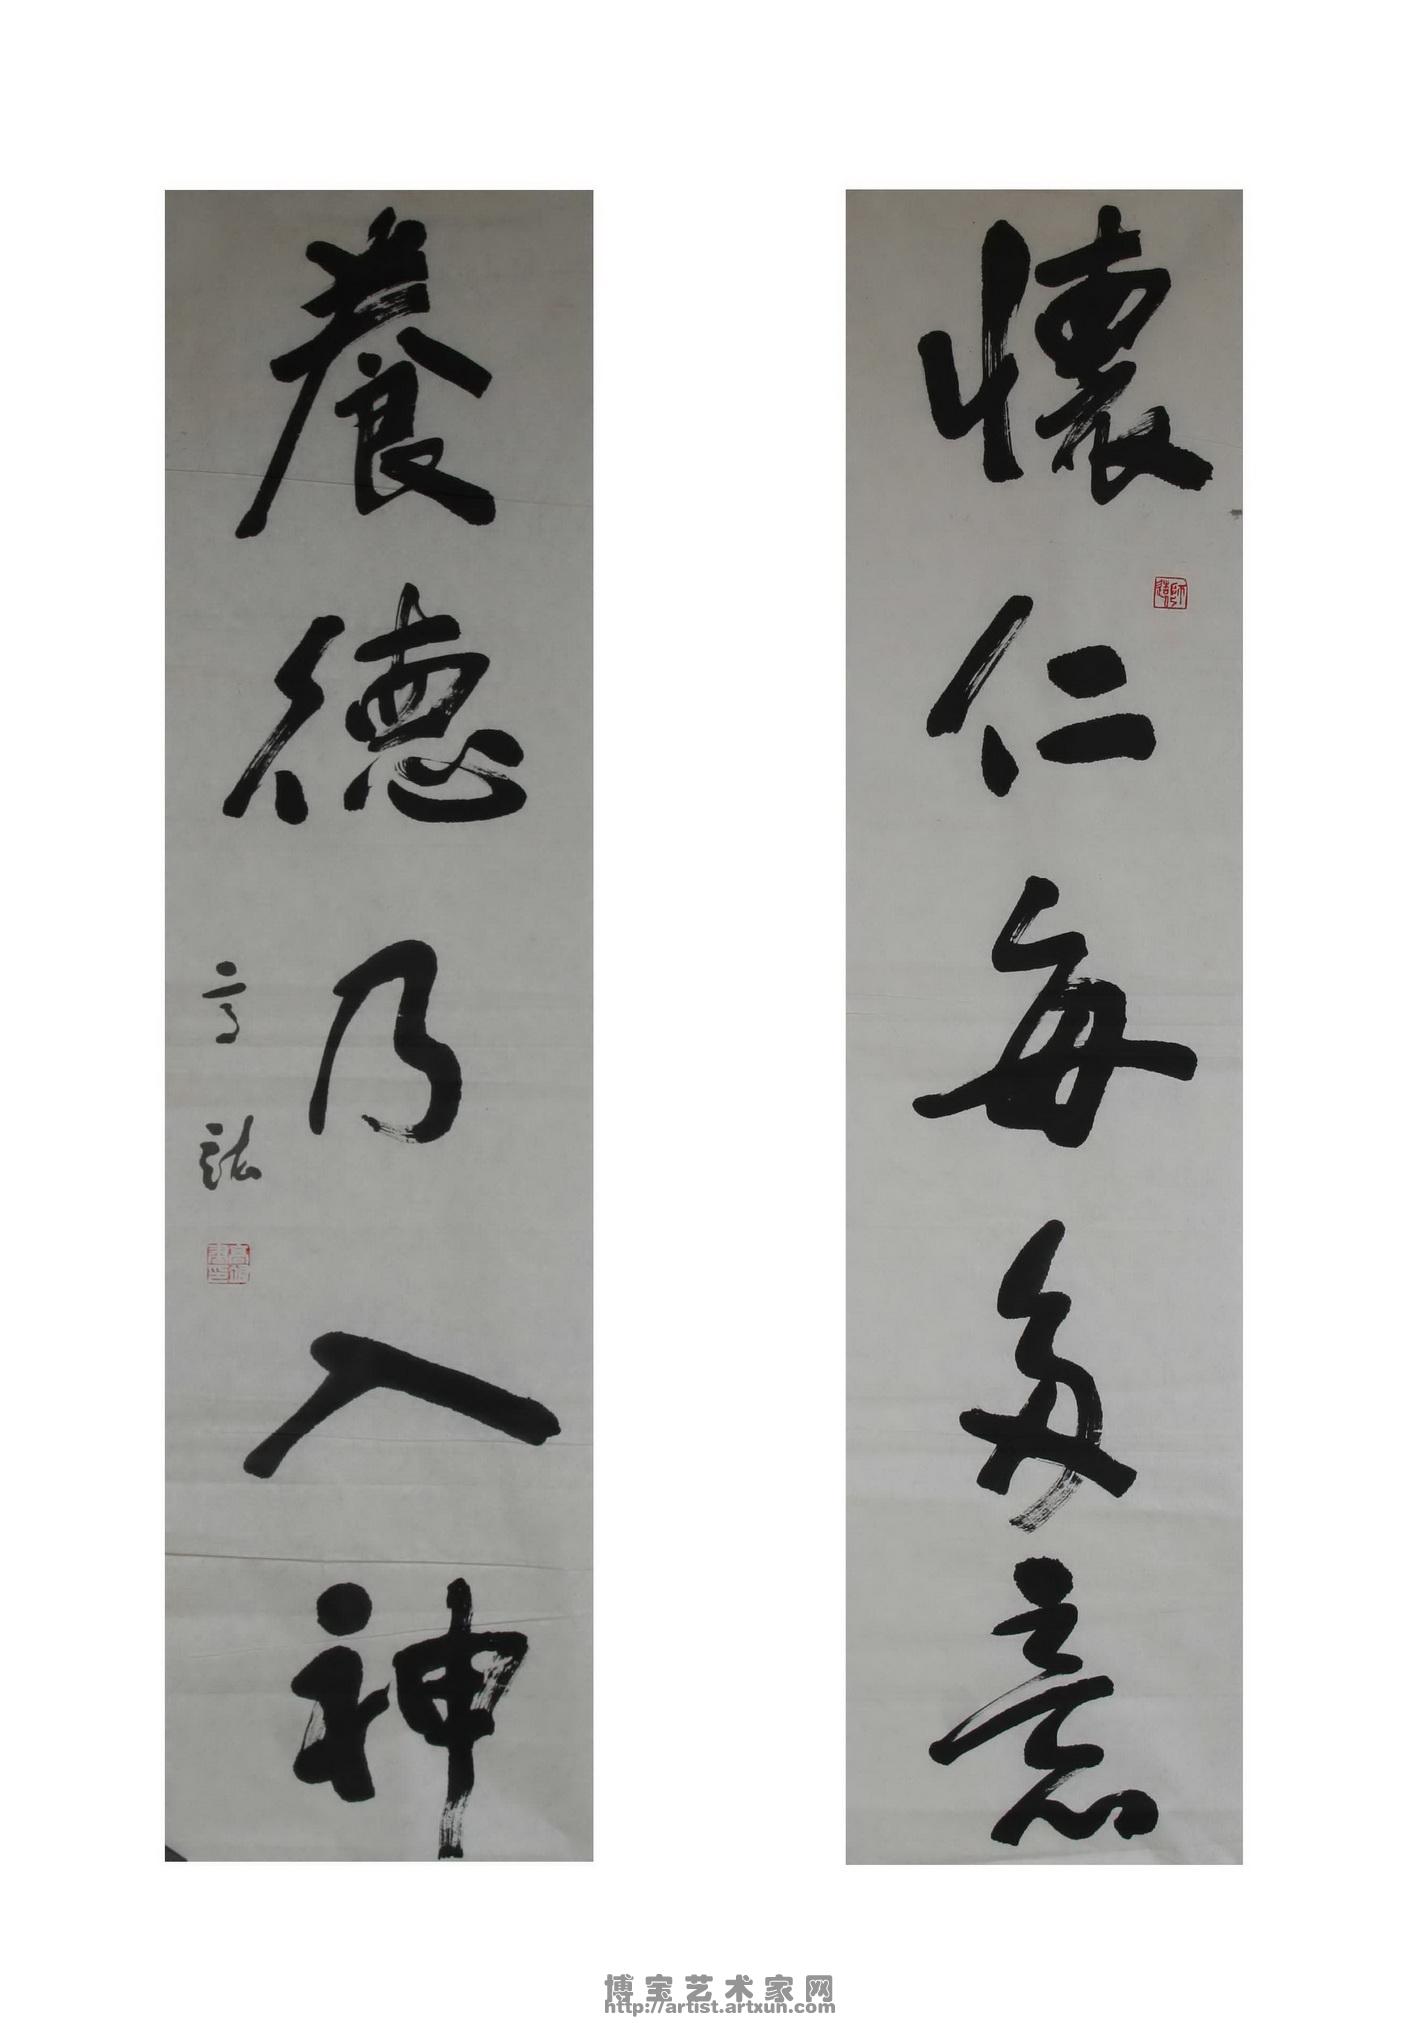 懷仁每多意
養德乃入神
博宝艺术家网
http://artist.artxun.com